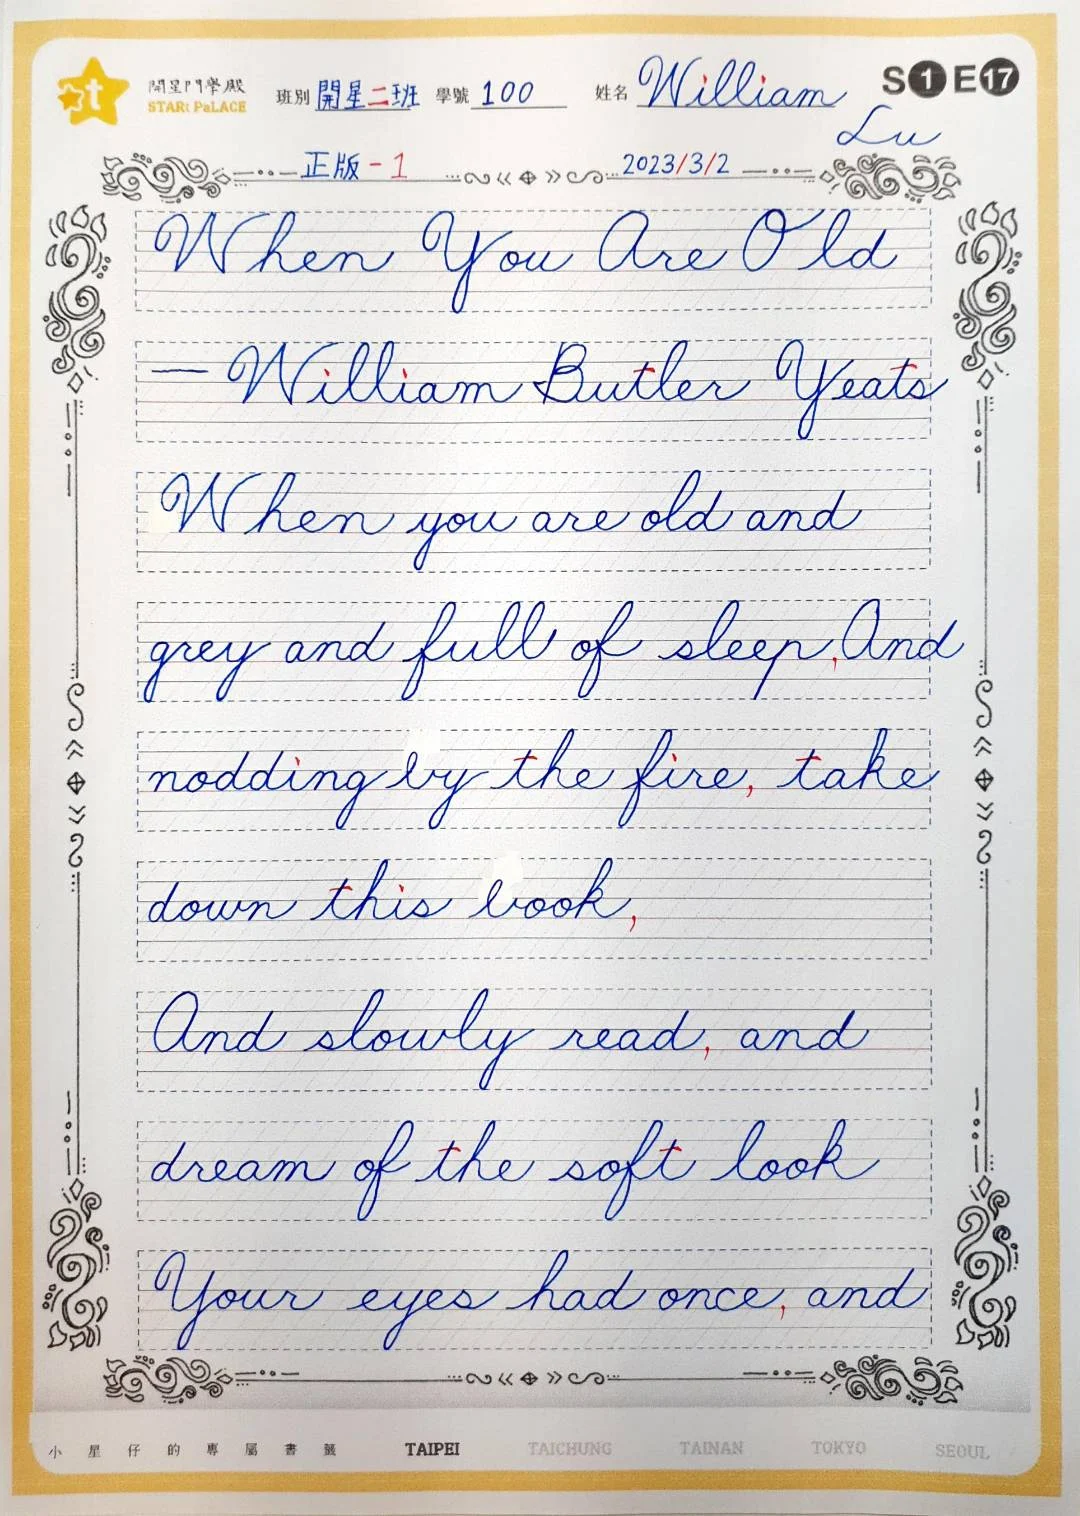 開星門學殿
STARt PaLACE
班別 開星二班 學號 100 姓名 William Lu
S1 E17
正版-1 2023/3/2
When You Are Old
— William Butler Yeats
When you are old and
grey and full of sleep, And
nodding by the fire, take
down this book,
And slowly read, and
dream of the soft look
Your eyes had once, and
小星仔的專屬書籤 TAIPEI TAICHUNG TAINAN TOKYO SEOUL